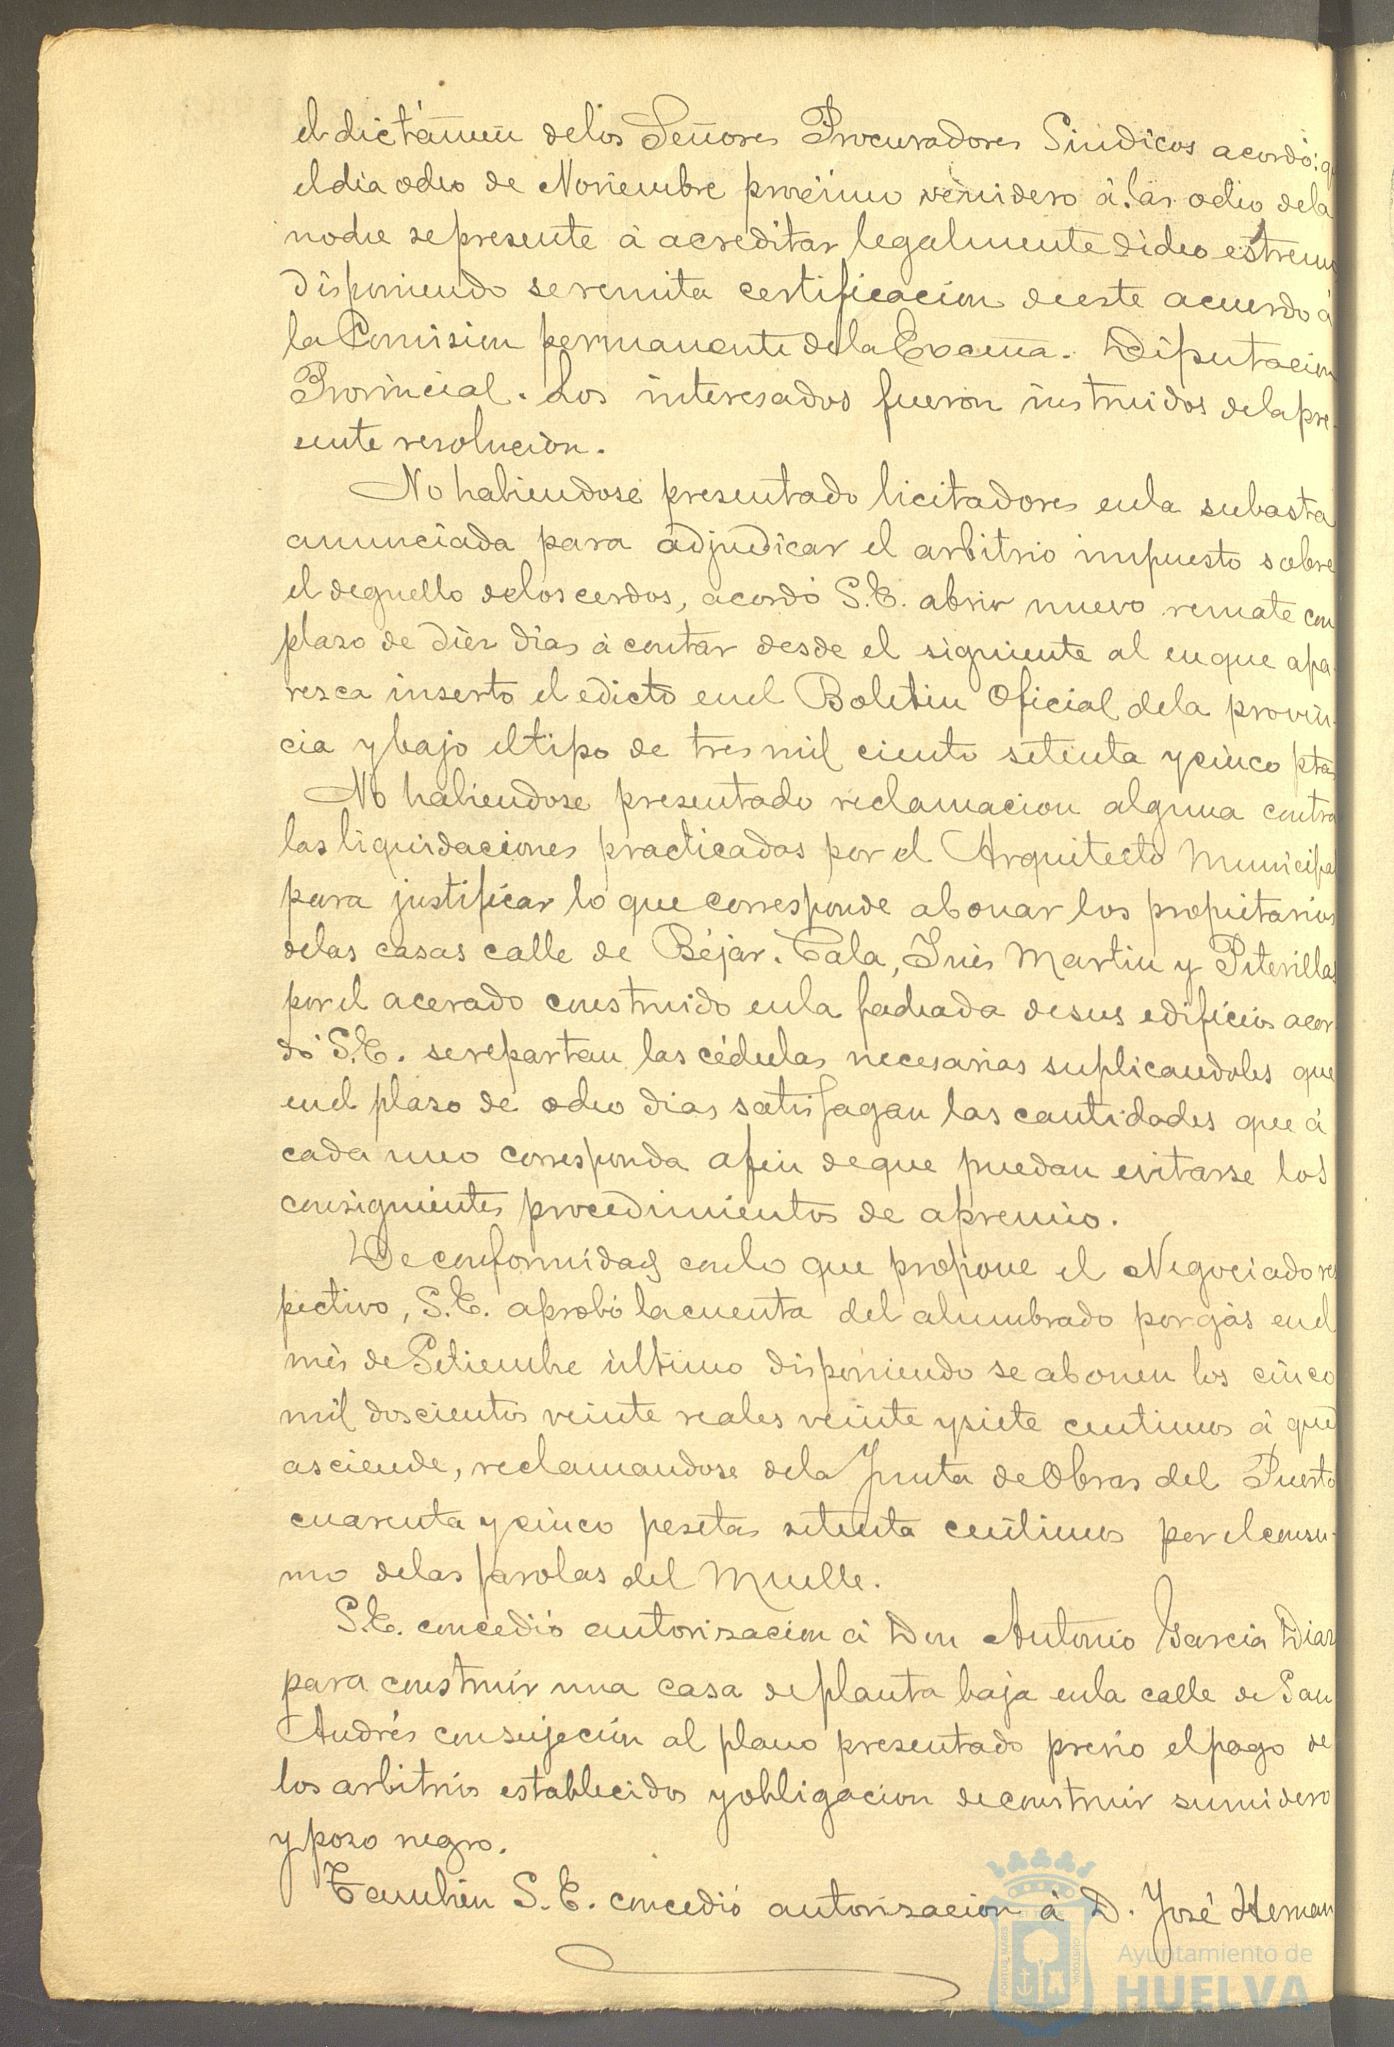 el dictámen de los Señores Procuradores Sindicos acordó: q
el dia ocho de Noviembre proximo venidero á las ocho de la
noche se presente á acreditar legalmente dicho estremo
disponiendo se remita certificacion de este acuerdo á
la Comision permanente de la Excma. Diputacion
Provincial. Los interesados fueron instruidos de la pre-
sente resolucion.
No habiendose presentado licitadores en la subasta
anunciada para adjudicar el arbitrio impuesto sobre
el deguello de los cerdos, acordó S.E. abrir nuevo remate con
plazo de diez dias á contar desde el siguiente al en que apa-
resca inserto el edicto en el Boletin Oficial de la provin-
cia y bajo el tipo de tres mil ciento setenta y cinco ptas
No habiendose presentado reclamacion alguna contra
las liquidaciones practicadas por el Arquitecto Municipal
para justificar lo que corresponde abonar los propietarios
de las casas calle de Béjar, Cala, Inés Martin y Puterilla
por el acerado construido en la fachada de sus edificios acor
dó S.E. se repartan las cédulas necesarias suplicandoles que
en el plazo de ocho dias satisfagan las cantidades que á
cada uno corresponda a fin de que puedan evitarse los
consiguientes procedimientos de apremio.
De conformidad con lo que propone el Negociado res
pectivo, S.E. aprobó la cuenta del alumbrado por gas en el
mes de Setiembre último disponiendo se abonen los cinco
mil doscientos veinte reales veinte y siete centimos á que
asciende, reclamandose de la Junta de Obras del Puerto
cuarenta y cinco pesetas setenta centimos por el consu-
mo de las farolas del Muelle.
S.E. concedió autorizacion á Don Antonio Garcia Diaz
para construir una casa de planta baja en la calle de San
Andrés con sujecion al plano presentado previo el pago de
los arbitrios establecidos y obligacion de construir sumidero
y pozo negro.
Tambien S.E. concedió autorizacion á D. José Hernan
Ayuntamiento de
HUELVA